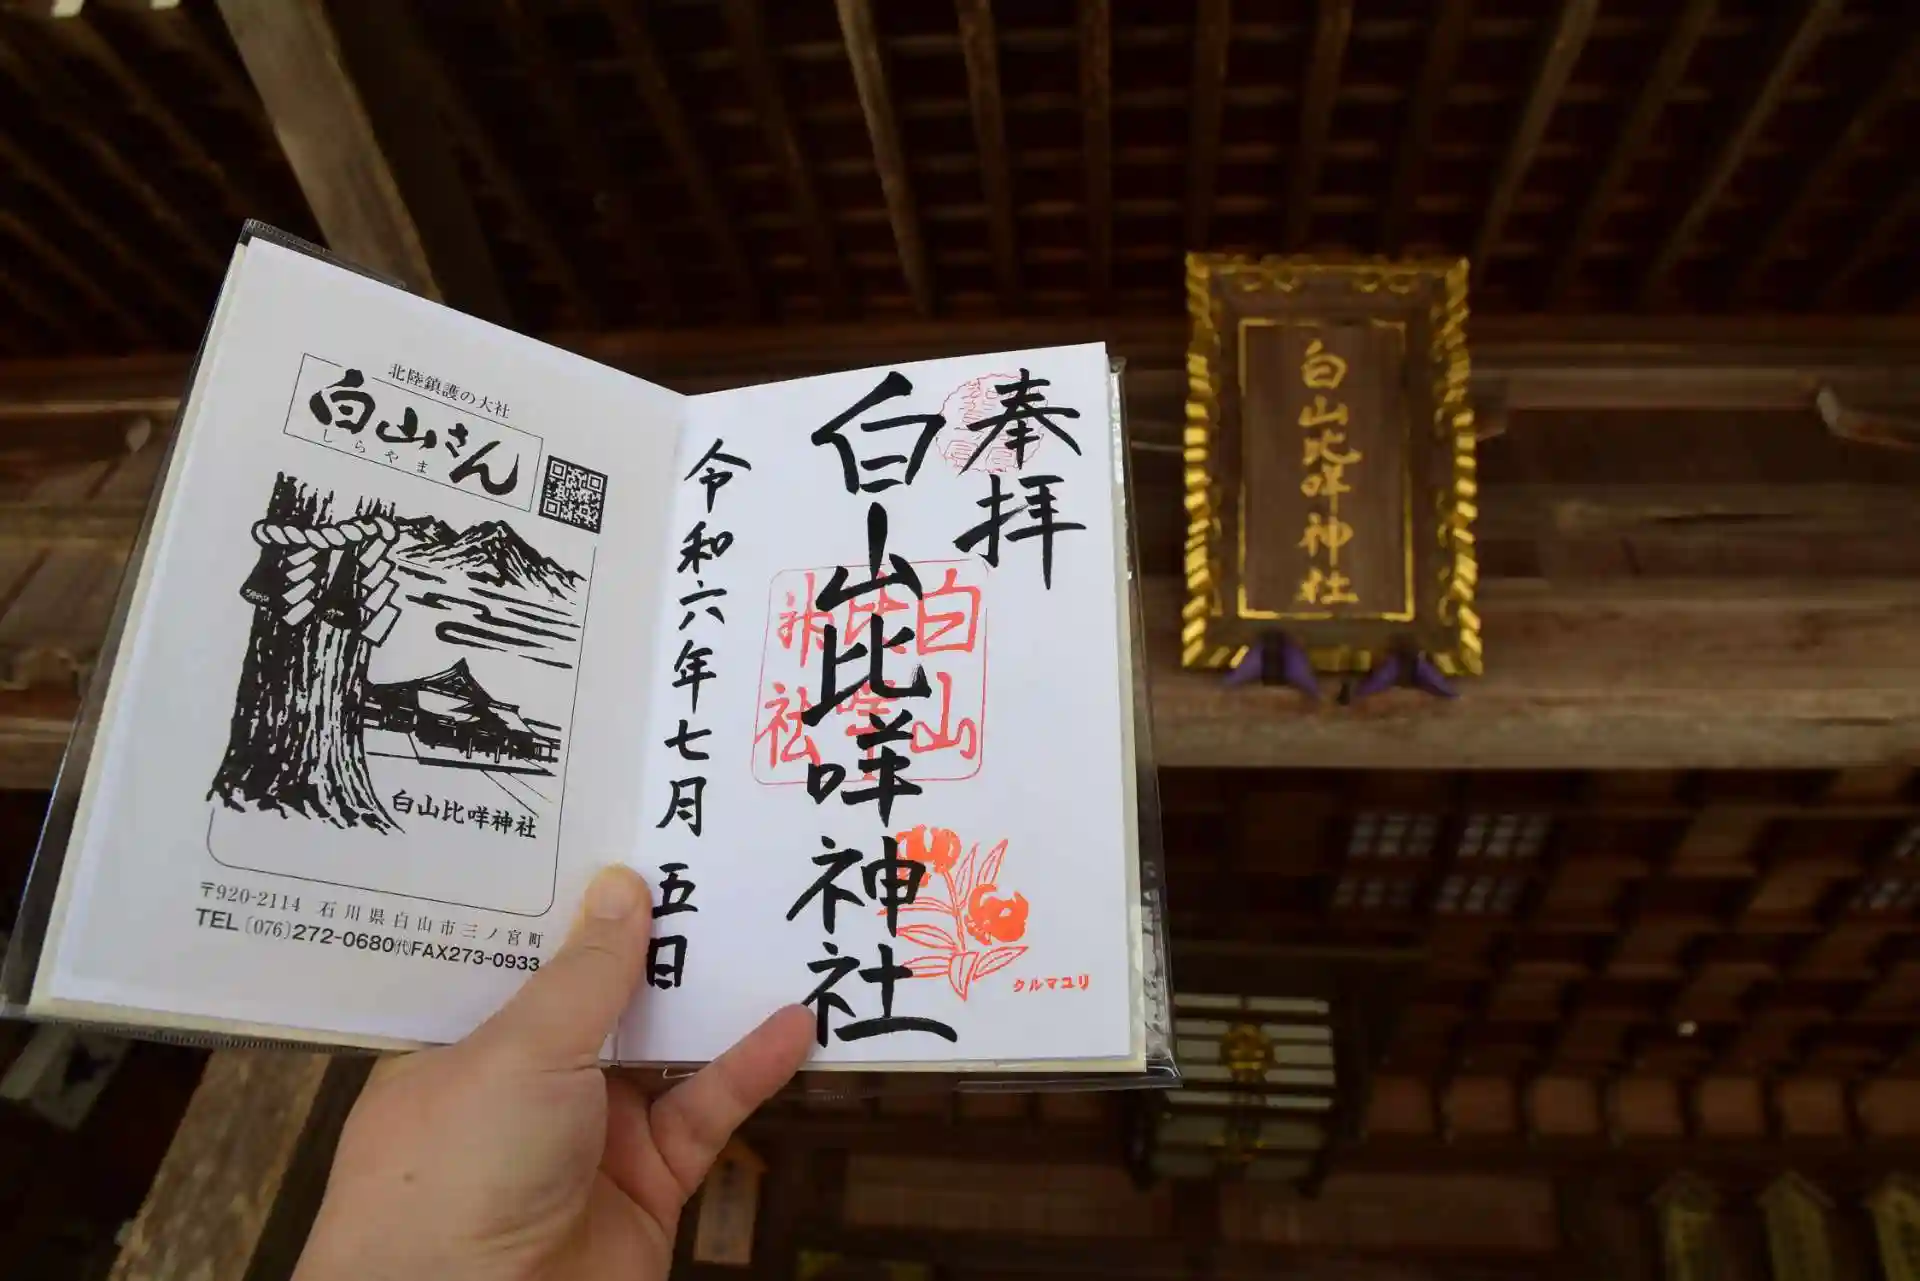 北陸鎮護の大社
白山さん
しらやま
白山比咩神社
〒920-2114 石川県白山市三ノ宮町
TEL〔076〕272-0680㈹FAX273-0933
奉拝
白山比咩神社
白山
比咩
神社
令和六年七月五日
クルマユリ
白山比咩神社